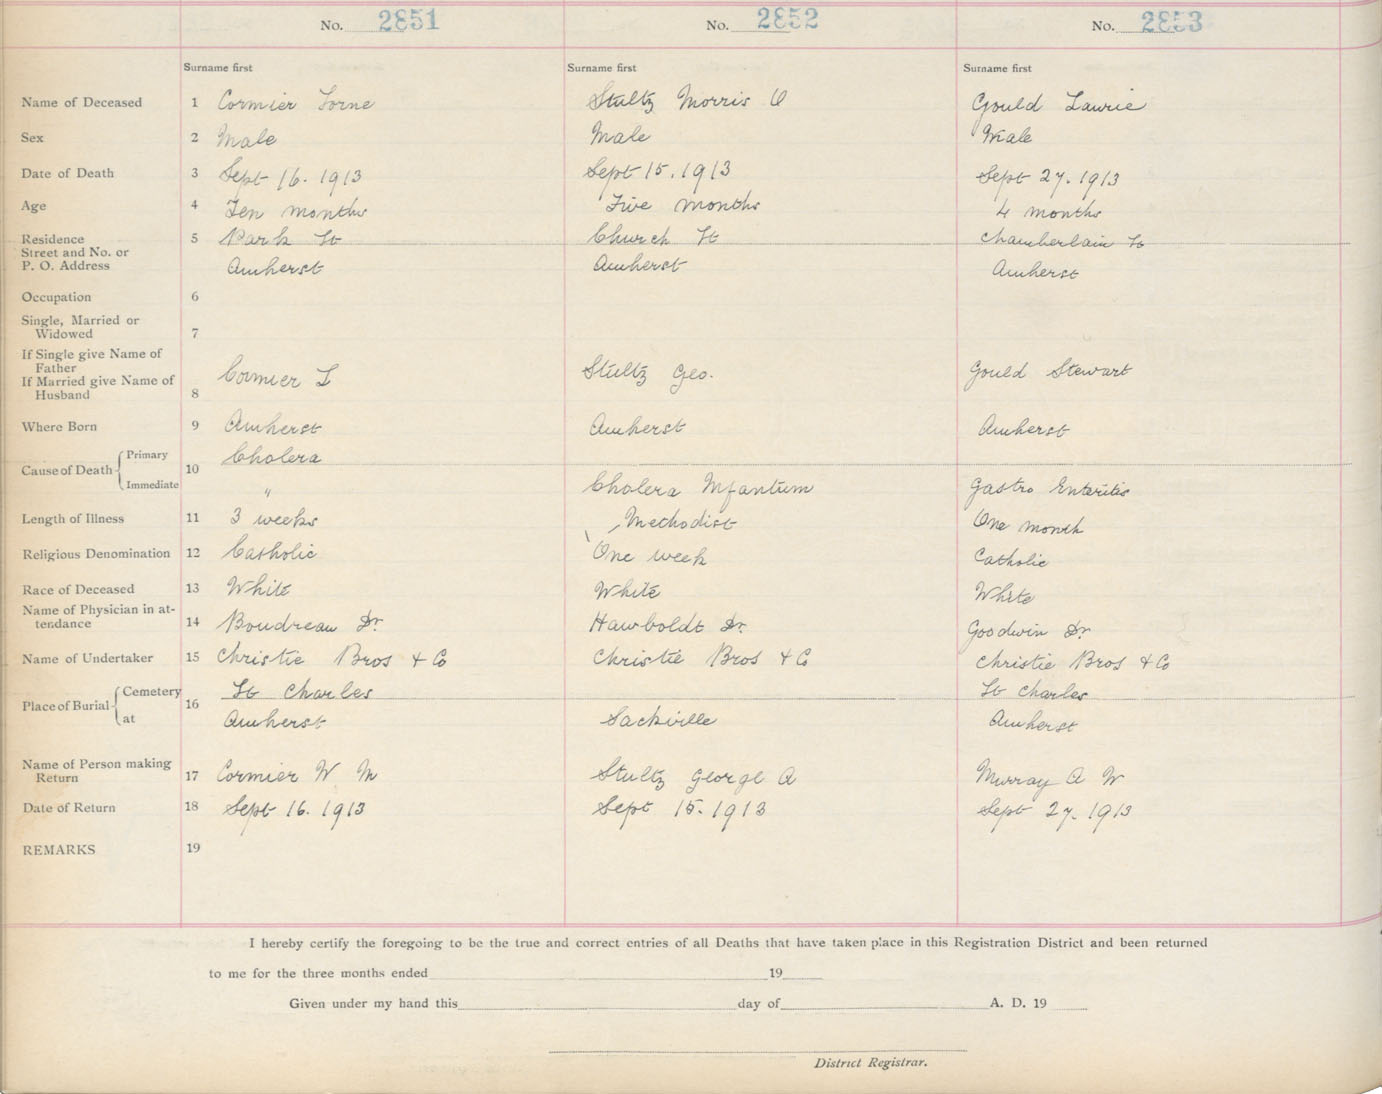 No. 2851 No. 2852 No. 2853
Surname first Surname first Surname first
Name of Deceased 1 Cormier Lorne Stultz Morris O Gould Laurie
Sex 2 Male Male Male
Date of Death 3 Sept 16. 1913 Sept 15. 1913 Sept 27. 1913
Age 4 Ten months Five months 4 months
Residence 5 Park St Church St Chamberlain St
Street and No. or
P. O. Address Amherst Amherst Amherst
Occupation 6
Single, Married or
Widowed 7
If Single give Name of
Father
If Married give Name of Cormier L Stultz Geo. Gould Stewart
Husband 8
Where Born 9 Amherst Amherst Amherst
Cause of Death Primary 10 Cholera
Immediate " Cholera Infantum Gastro Enteritis
Length of Illness 11 3 weeks Methodist One month
Religious Denomination 12 Catholic One week Catholic
Race of Deceased 13 White White White
Name of Physician in at-
tendance 14 Boudreau Dr. Hawboldt Dr. Goodwin Dr.
Name of Undertaker 15 Christie Bros + Co Christie Bros + Co Christie Bros + Co
Place of Burial Cemetery 16 St Charles St Charles
at Amherst Sackville Amherst
Name of Person making
Return 17 Cormier W M Stultz George A Murray A W
Date of Return 18 Sept 16. 1913 Sept 15. 1913 Sept 27. 1913
REMARKS 19
I hereby certify the foregoing to be the true and correct entries of all Deaths that have taken place in this Registration District and been returned
to me for the three months ended 19
Given under my hand this day of A. D. 19
District Registrar.